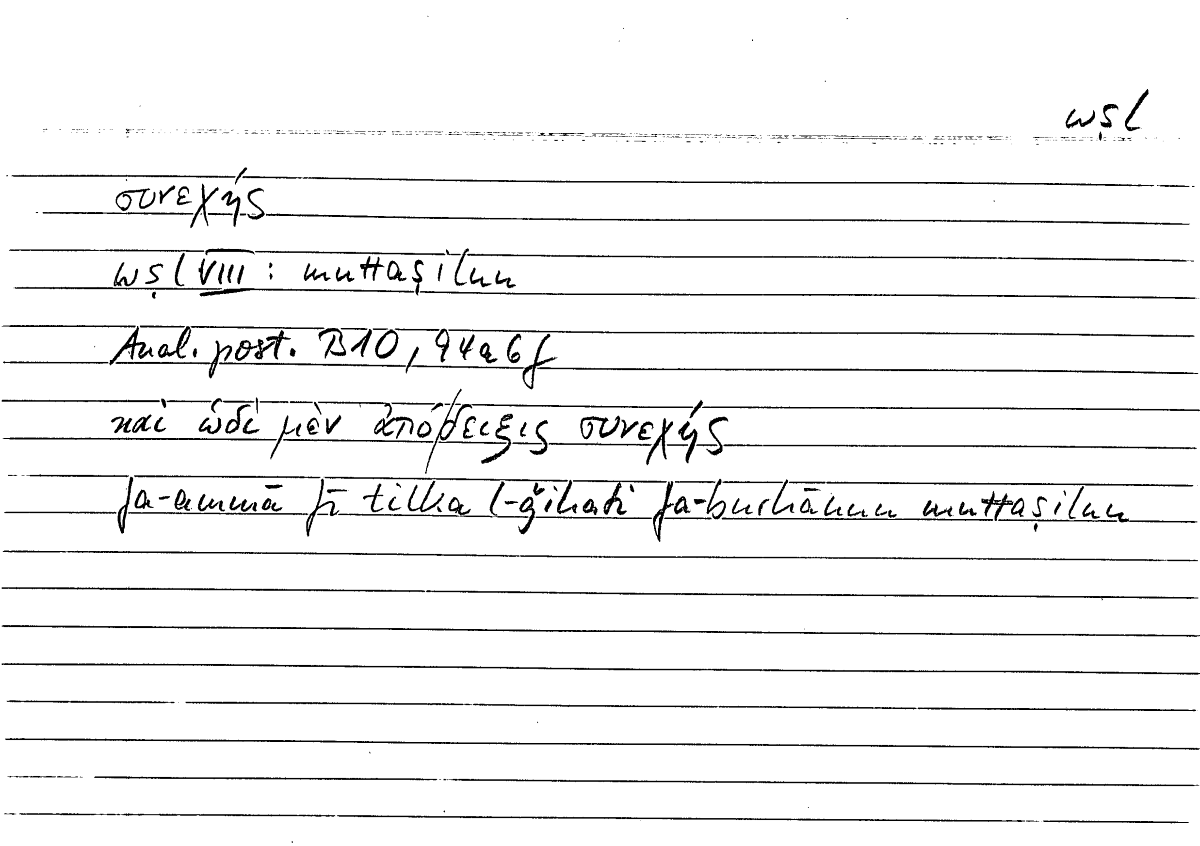 wṣl
συνεχής
wṣl VIII : muttaṣilun
Anal. post. B10, 94a6f
καὶ ὡδὶ μὲν ἀπόδειξις συνεχής
fa-ammā fī tilka l-ǧihati fa-burhānun muttaṣilun